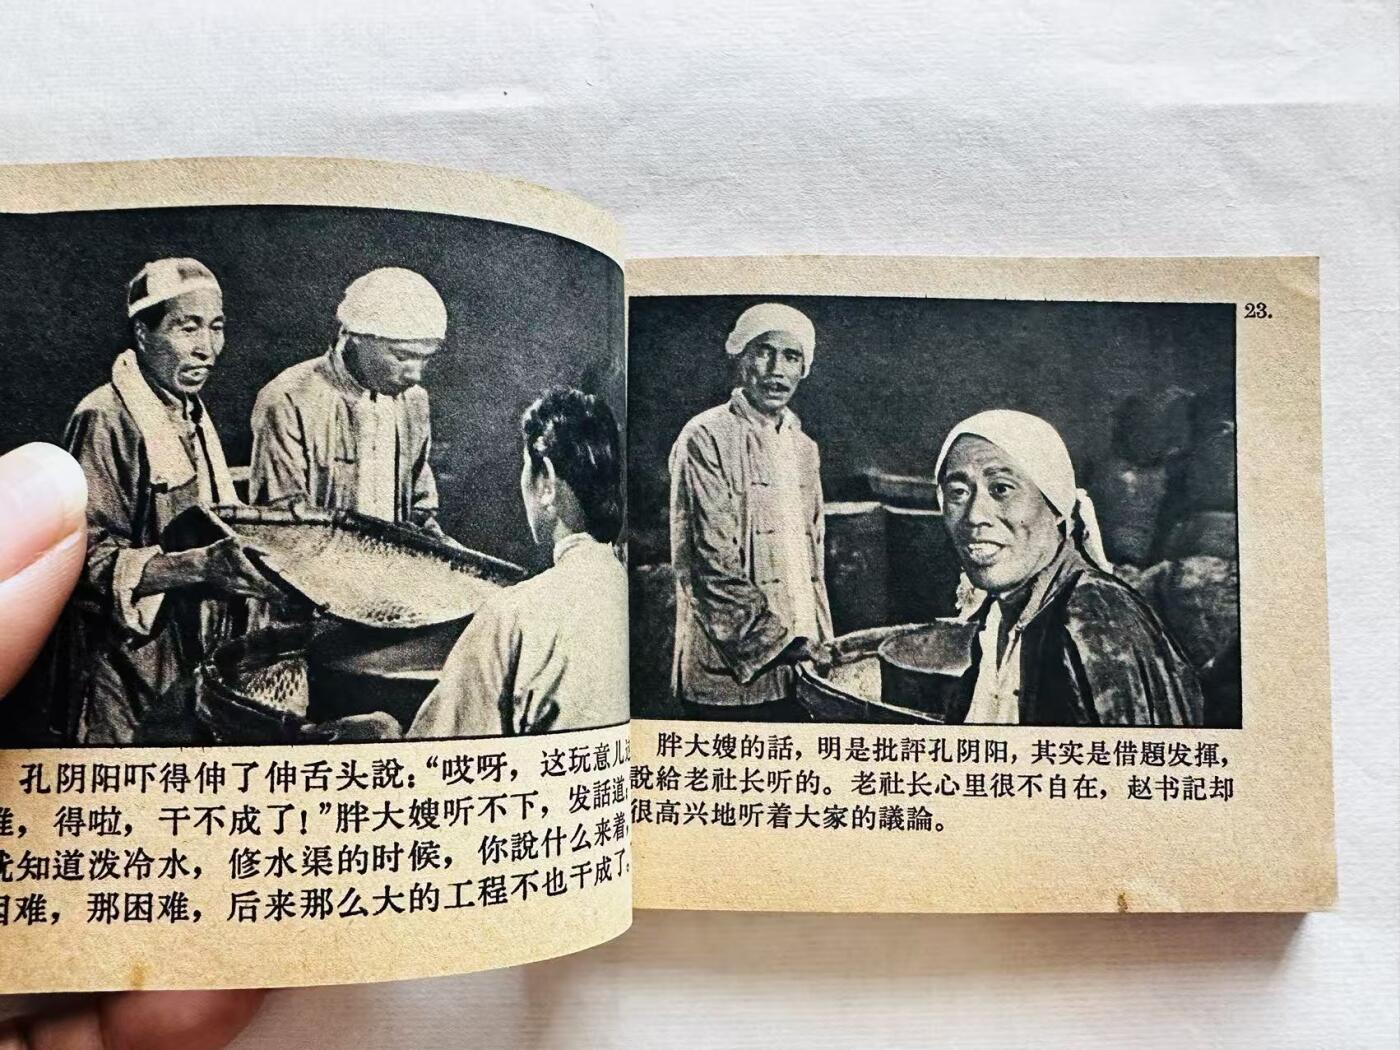 孔阴阳吓得伸了伸舌头說：“哎呀，这玩意儿
难，得啦，干不成了！”胖大嫂听不下，发話道：
就知道泼冷水，修水渠的时候，你說什么来着，
困难，那困难，后来那么大的工程不也干成了
23.
胖大嫂的話，明是批評孔阴阳，其实是借題发揮，
說給老社长听的。老社长心里很不自在，赵书記却
很高兴地听着大家的議論。